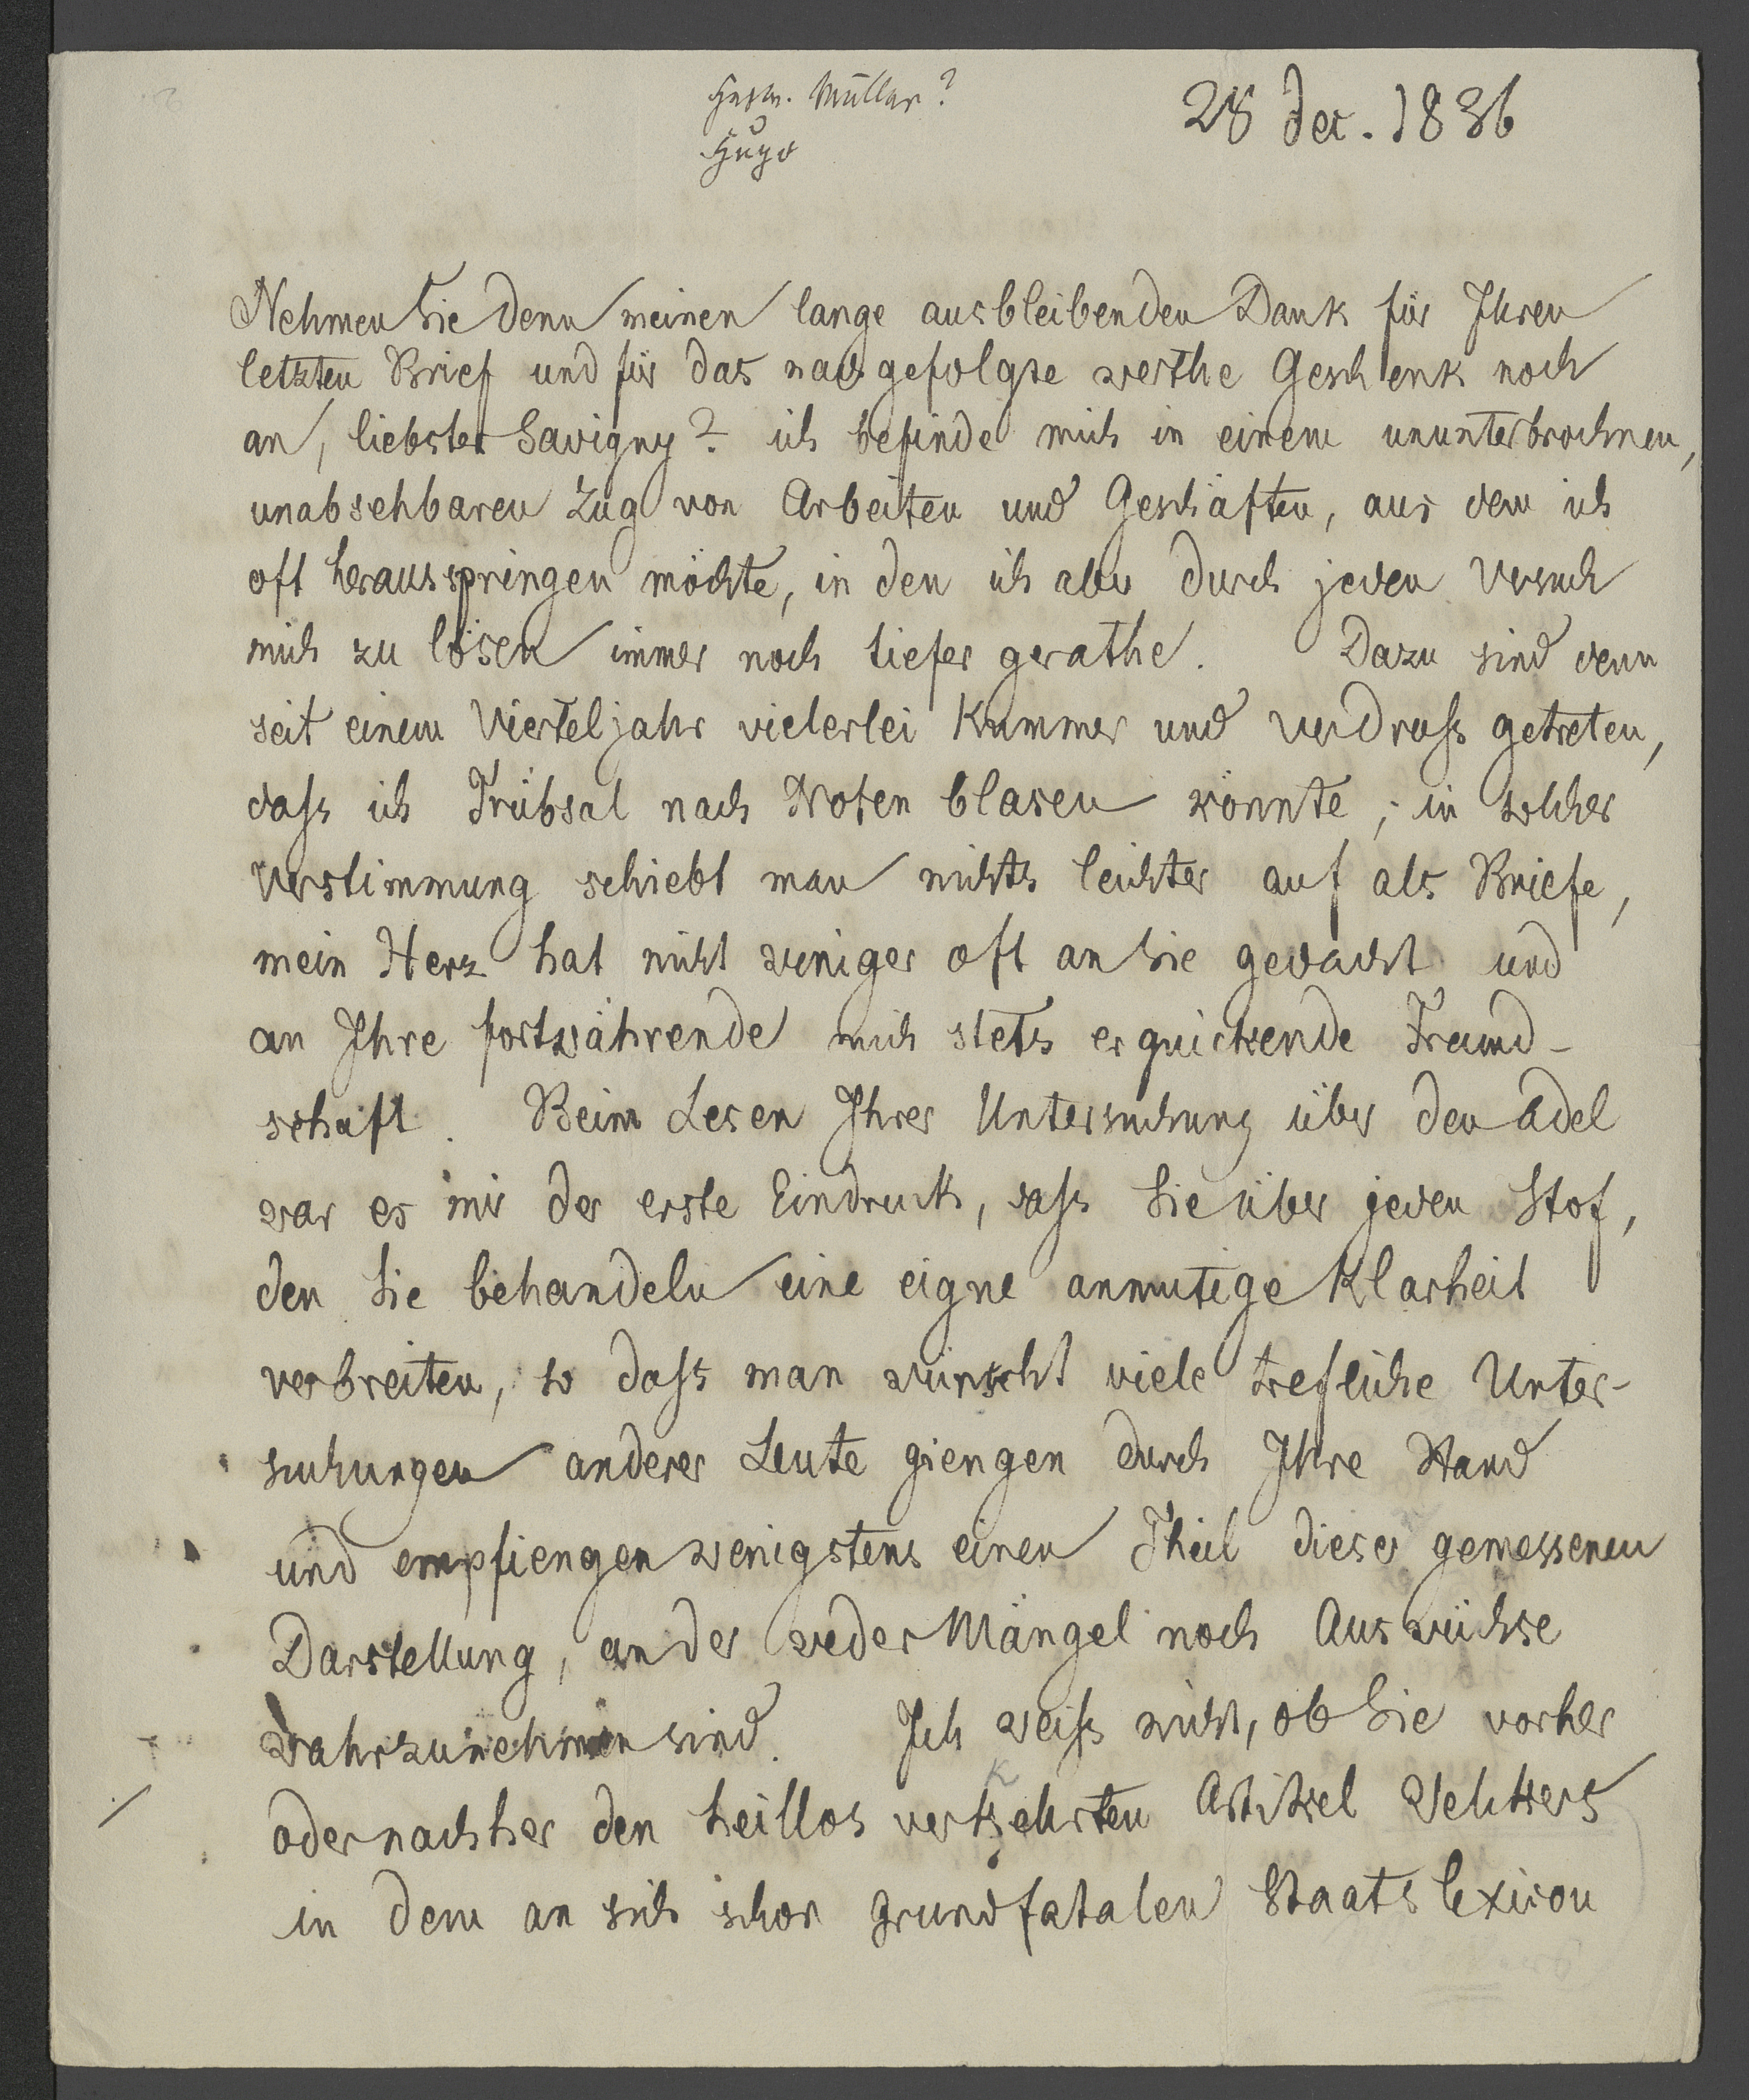 Müller?
Hugo
28 dec. 1836
Nehmen Sie denn meinen lange ausbleibenden Dank für Ihren
letzten Brief und für das nachgefolgte werthe Geschenk noch
an, liebster Savigny? ich befinde mich in einem ununterbrochnen,
unabsehbaren Zug von Arbeiten und Geschäften, aus dem ich
oft herausspringen möchte, in den ich aber durch jeden Versuch
mich zu lösen immer noch tiefer gerathe. Dazu sind denn
seit einem Vierteljahr vielerlei Kummer und Verdruß getreten,
daß ich Trübsal nach Noten blasen könnte; in solcher
Verstimmung schiebt man nichts leichter auf als Briefe,
mein Herz hat nicht weniger oft an Sie gedacht und
an Ihre fortwährende mich stets erquickende Freund-
schaft. Beim Lesen Ihrer Untersuchung über den Adel
war es mir der erste Eindruck, daß Sie über jeden Stof,
den Sie behandeln eine eigne anmutige Klarheit
verbreiten, so daß man wünscht viele trefliche Unter-
suchungen anderer Leute giengen durch Ihre Hand
und empfiengen wenigstens einen Theil dieser gemessenen
Darstellung, an der weder Mängel noch Auswüchse
wahrzunehmen sind. Ich weiß nicht, ob Sie vorher
k
oder nachher den heillos verkehrten Artikel Welckers
in dem an sich schon grundfatalen Staatslexicon